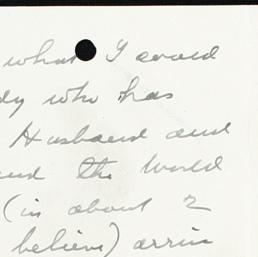 what I could
dy who has
Husband and
and the World
(in about 2
believe) arriv